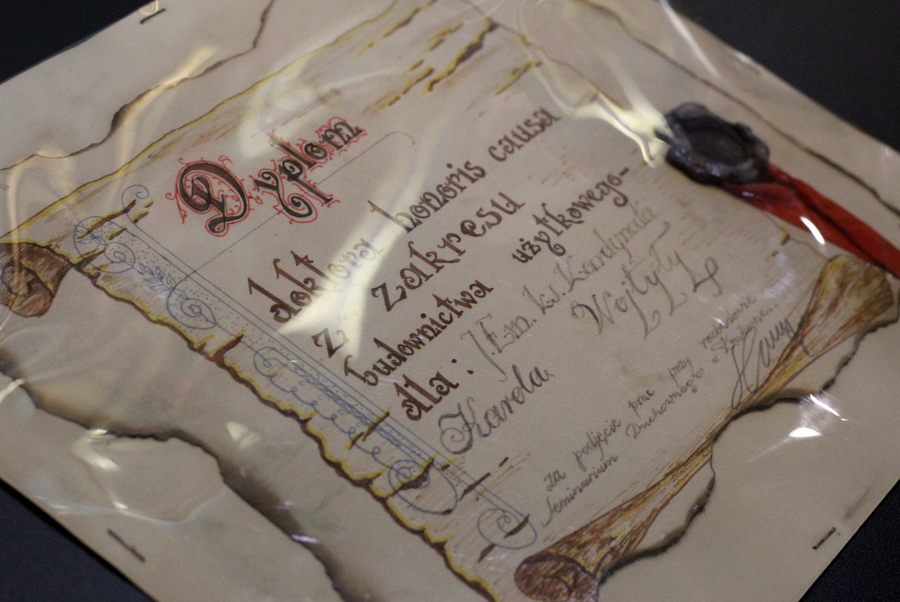 Dyplom
doktora honoris causa
z zakresu
budownictwa użytkowego-
dla: J.Em. ks. Kardynała
Karola Wojtyły
za podjęcie prac przy rozbudowie
Seminarium Duchownego w Krakowie.